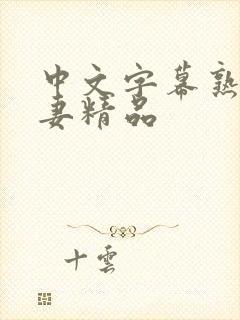 中文字幕熟
妻精品
十雲